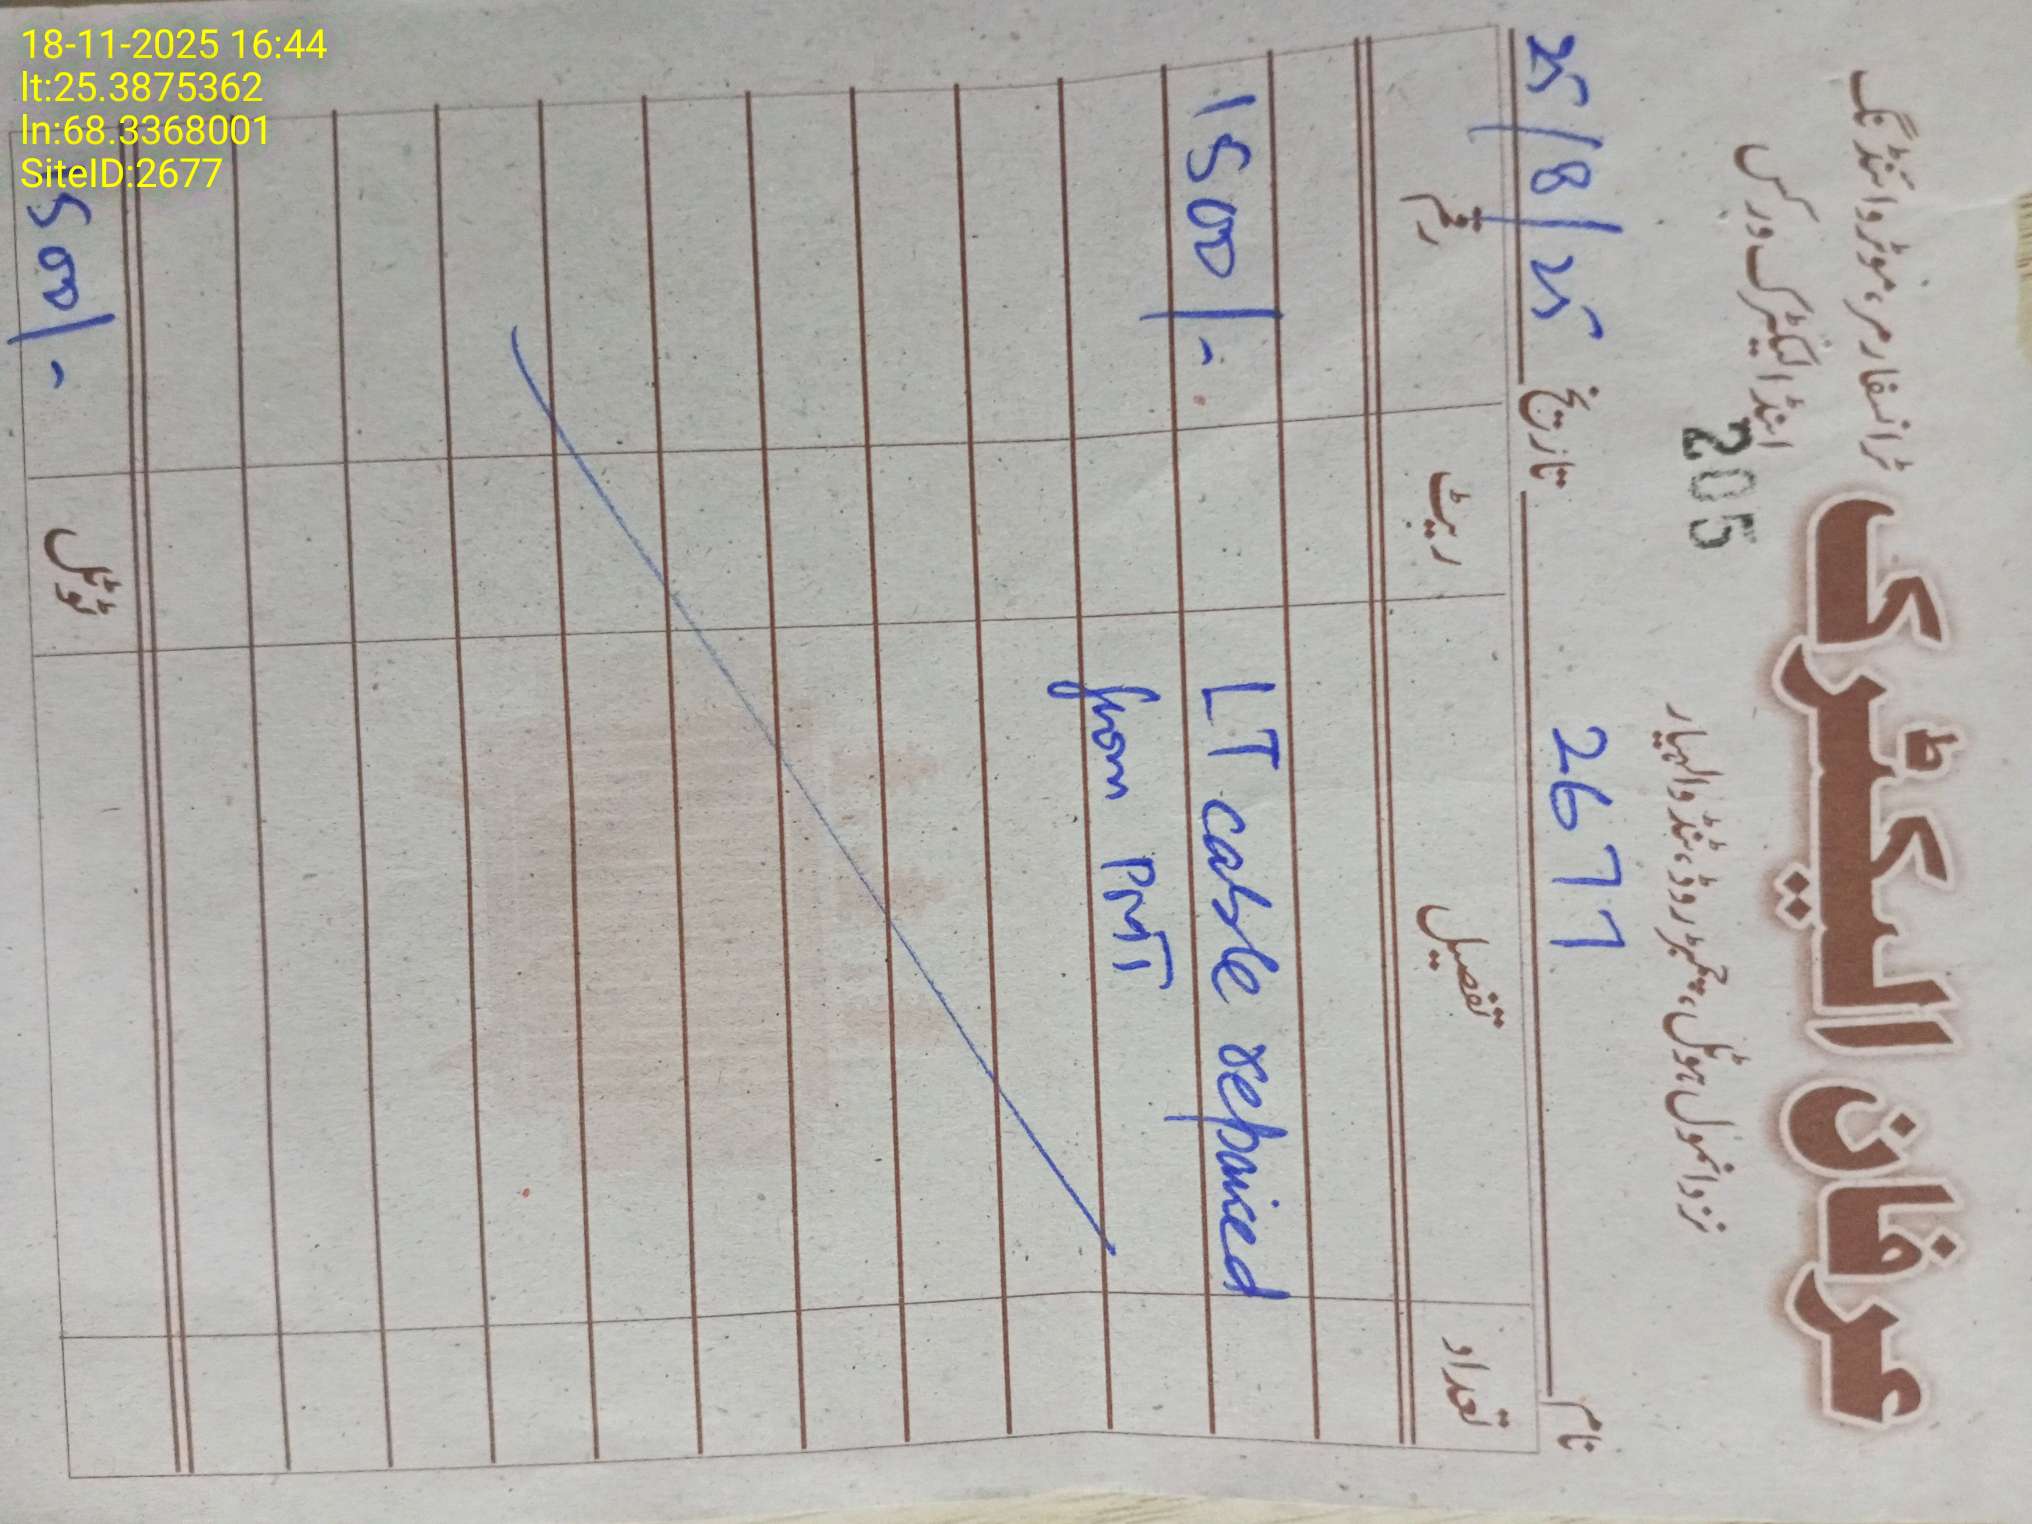 18-11-2025 16:44
lt:25.3875362
ln:68.3368001
SiteID:2677
عرفان الیکٹرک
ٹرانسفارمر، موٹر وائنڈنگ
اینڈ الیکٹرک ورکس
205
نزد انمول ہوٹل، میرؔ روڈ، ٹنڈوالہیار
نام 2677 تاریخ 25/8/25
تعداد تفصیل ریٹ رقم
LT cable repaired 1500/-
from PMT
ٹوٹل 500/-